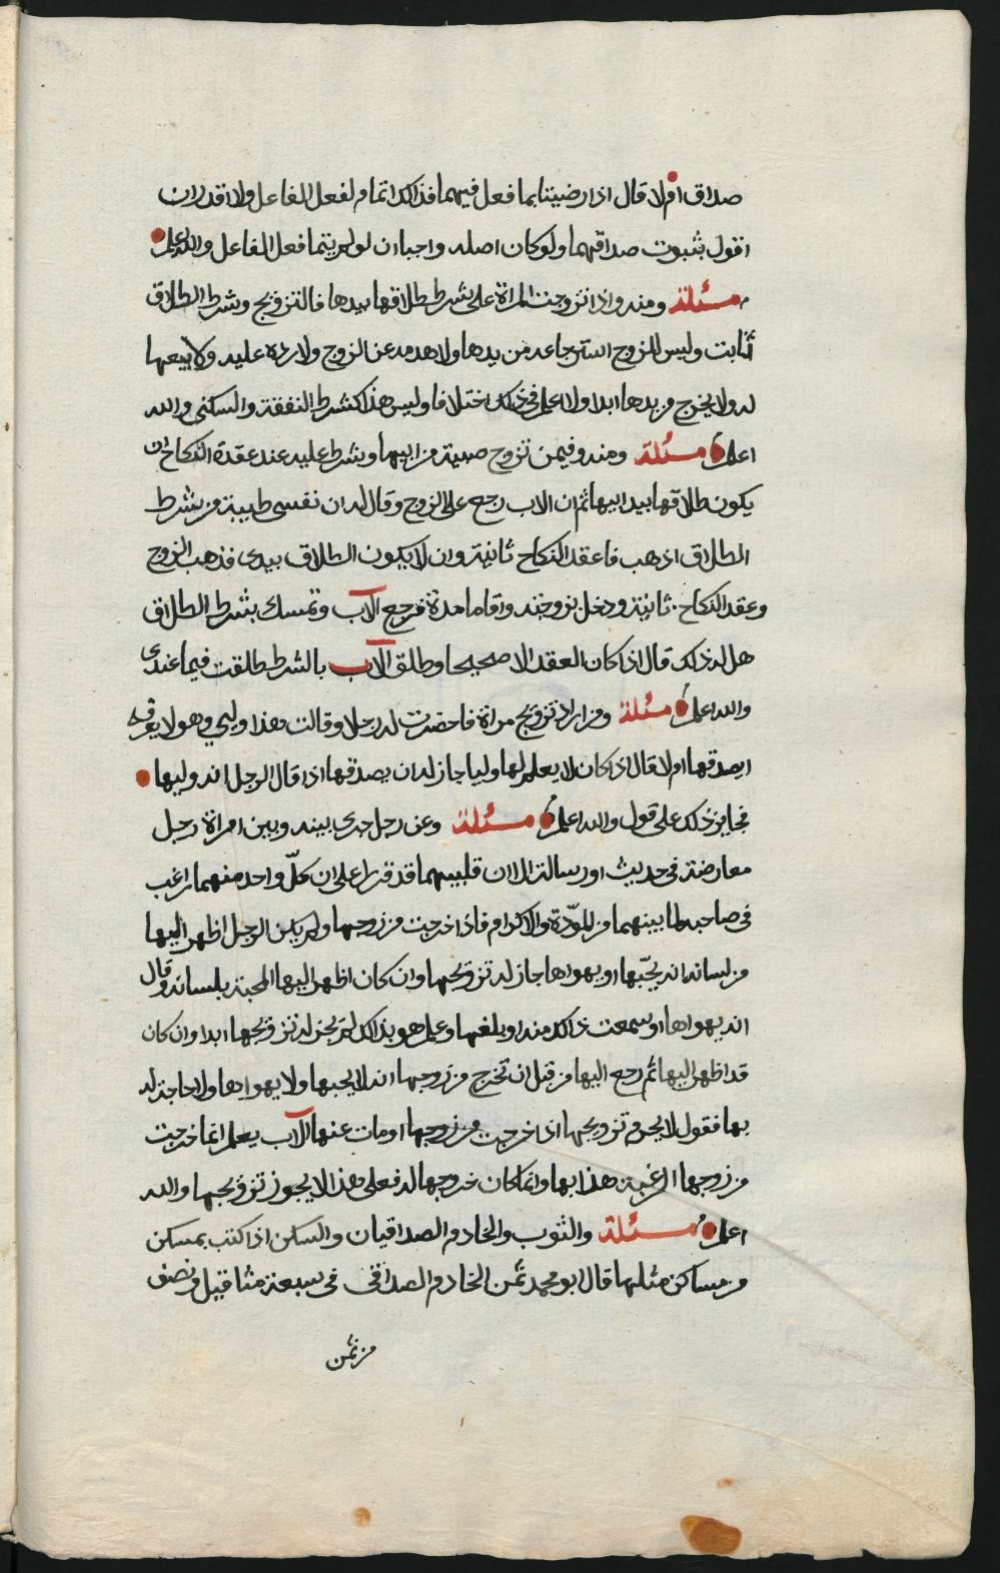 صداق ام لا قال اذا رضيتا بما فعل فيهما فذلك اتمام لفعل الفاعل ولا اقدر ان
اقول بثبوت صداقهما ولو كان اصله واجبا ان لو لم يتما فعل الفاعل والله اعلم
مسئلة ومنه واذا تزوجت المراة على شرط طلاقها بيدها فالتزويج وشرط الطلاق
ثابت وليس للزوج استرجاعه من يدها ولا هدمه عن الزوج ولا رده عليه ولا بيعها
له ولا يخرج من يدها ابدا ولا اعلم في ذلك اختلافا وليس هذا كشرط النفقة والسكنى والله
اعلم مسئلة ومنه وفيمن تزوج صبية من ابيها وشرط عليه عند عقدة النكاح ان
يكون طلاقها بيد ابيها ثم ان الاب رجع على الزوج وقال له ان نفسي طيبة من شرط
الطلاق اذهب فاعقد النكاح ثانية وان لا يكون الطلاق بيدي فذهب الزوج
وعقد النكاح ثانية ودخل بزوجته واقاما مدة فرجع الاب وتمسك بشرط الطلاق
هل له ذلك قال اذا كان العقد الا صحيحا وطلق الاب بالشرط طلقت فيما عندي
والله اعلم مسئلة ومن اراد تزويج مراة فاحضرت له رجلا وقالت هذا وليي وهو لا يعرفه
ايصدقها ام لا قال اذا كان لا يعلم لها وليا جاز له ان يصدقها اذا قال الرجل انه وليها
فجايز ذلك على قول والله اعلم مسئلة وعن رجل جرى بينه وبين امراة رجل
معارضة في حديث او رسالة الا ان قلبيهما قد قرا على ان كلّ واحد منهما راغب
في صاحبه لما بينهما من المودّة والاكرام فاذا خرجت من زوجها ولم يكن الرجل اظهر اليها
من لسانه انه يحبّها او يهواها جاز له تزويجها وان كان اظهر اليها المحبة بلسانه وقال
انه يهواها او سمعت ذلك منه او بلغها وعلم هو بذلك لم يجز له تزويجها ابدا وان كان
قد اظهر اليها ثم رجع اليها من قبل ان تخرج من زوجها انه لا يحبها ولا يهواها ولا حاجة له
بها فقول لا يحرم تزويجها اذا خرجت من زوجها او مات عنها الاب يعلم انما خرجت
من زوجها لرغبة هذا بها وانما كان خروجها له فعلى هذا لا يجوز تزويجها والله
اعلم مسئلة والثوب والخادم الصداقيان والسكن اذا كتب بمسكن
من مساكن مثلها قال ابو محمد ثمن الخادم الصداقي في سبعة مثاقيل ونصف
من ثمن